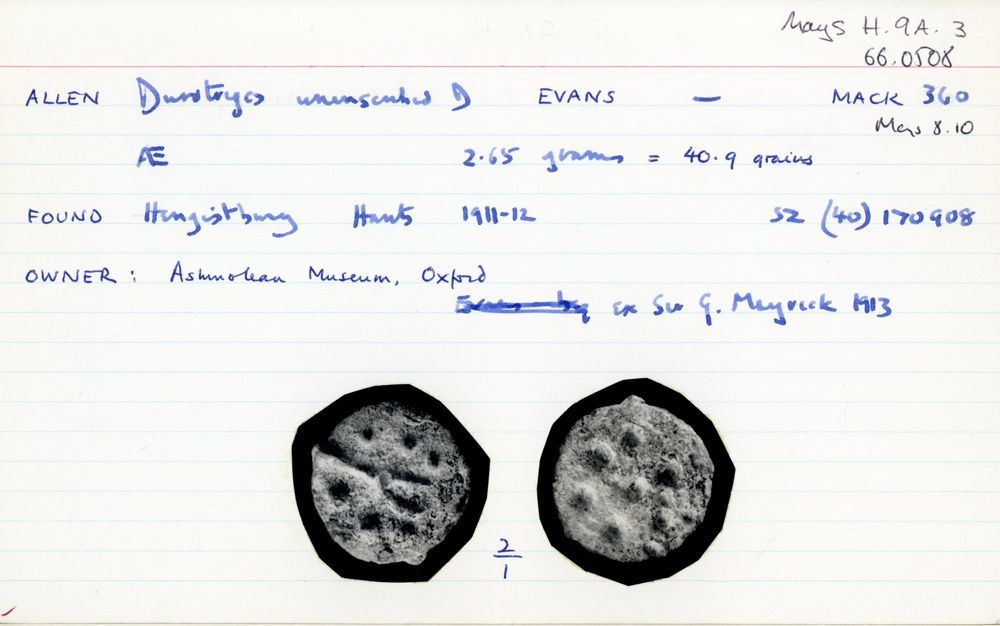 Mays H.9A.3
66.0508
ALLEN Durotriges uninscribed D EVANS — MACK 360
Mays 8.10
Æ 2.65 grams = 40.9 grains
FOUND Hengistbury Hants 1911-12 SZ (40) 170908
OWNER: Ashmolean Museum, Oxford
ex Sir G. Meyrick 1913
2
1